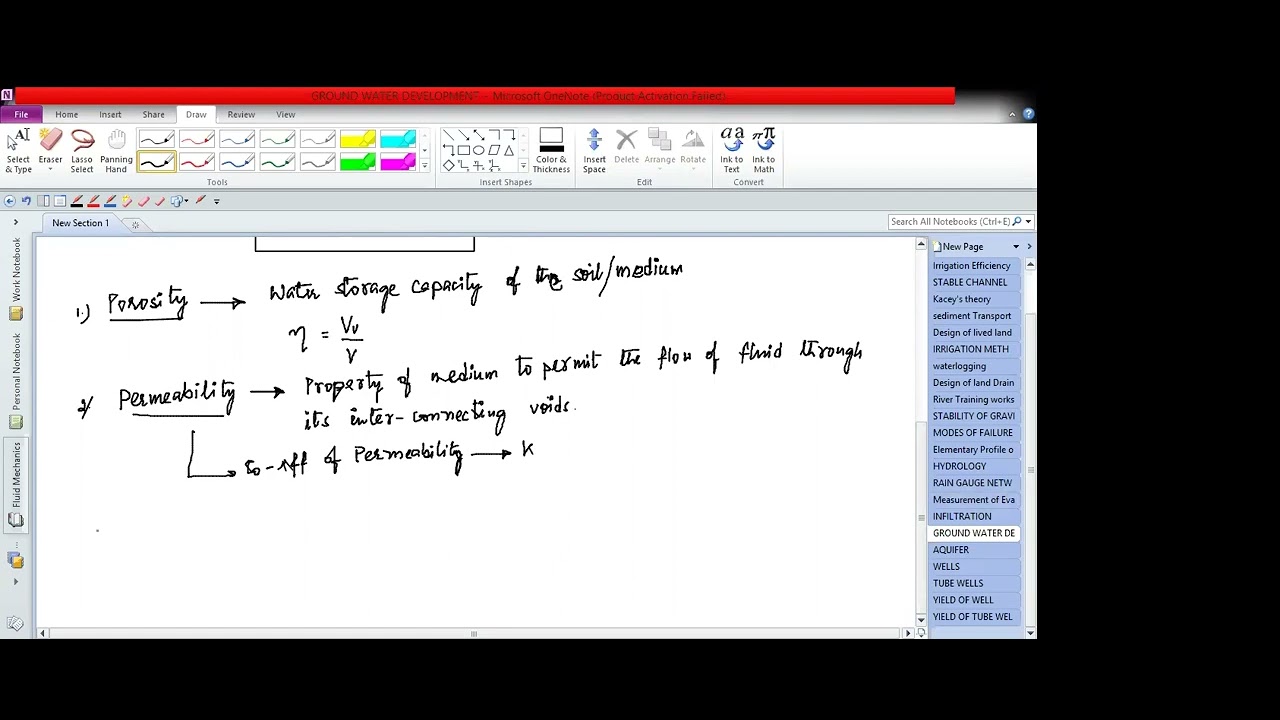 GROUND WATER DEVELOPMENT - Microsoft OneNote (Product Activation Failed)
File Home Insert Share Draw Review View
Select & Type Eraser Lasso Select Panning Hand Color & Thickness Insert Space Delete Arrange Rotate Ink to Text Ink to Math
Tools Insert Shapes Edit Convert
New Section 1 Search All Notebooks (Ctrl+E)
New Page
Work Notebook
Personal Notebook
Fluid Mechanics
1.) Porosity → Water storage capacity of the soil/medium
η = Vv/V
2/ Permeability → Property of medium to permit the flow of fluid through
its inter-connecting voids.
co-eff of Permeability → K
Irrigation Efficiency
STABLE CHANNEL
Kacey's theory
sediment Transport
Design of lived land
IRRIGATION METH
waterlogging
Design of land Drain
River Training works
STABILITY OF GRAVI
MODES OF FAILURE
Elementary Profile o
HYDROLOGY
RAIN GAUGE NETW
Measurement of Eva
INFILTRATION
GROUND WATER DE
AQUIFER
WELLS
TUBE WELLS
YIELD OF WELL
YIELD OF TUBE WEL